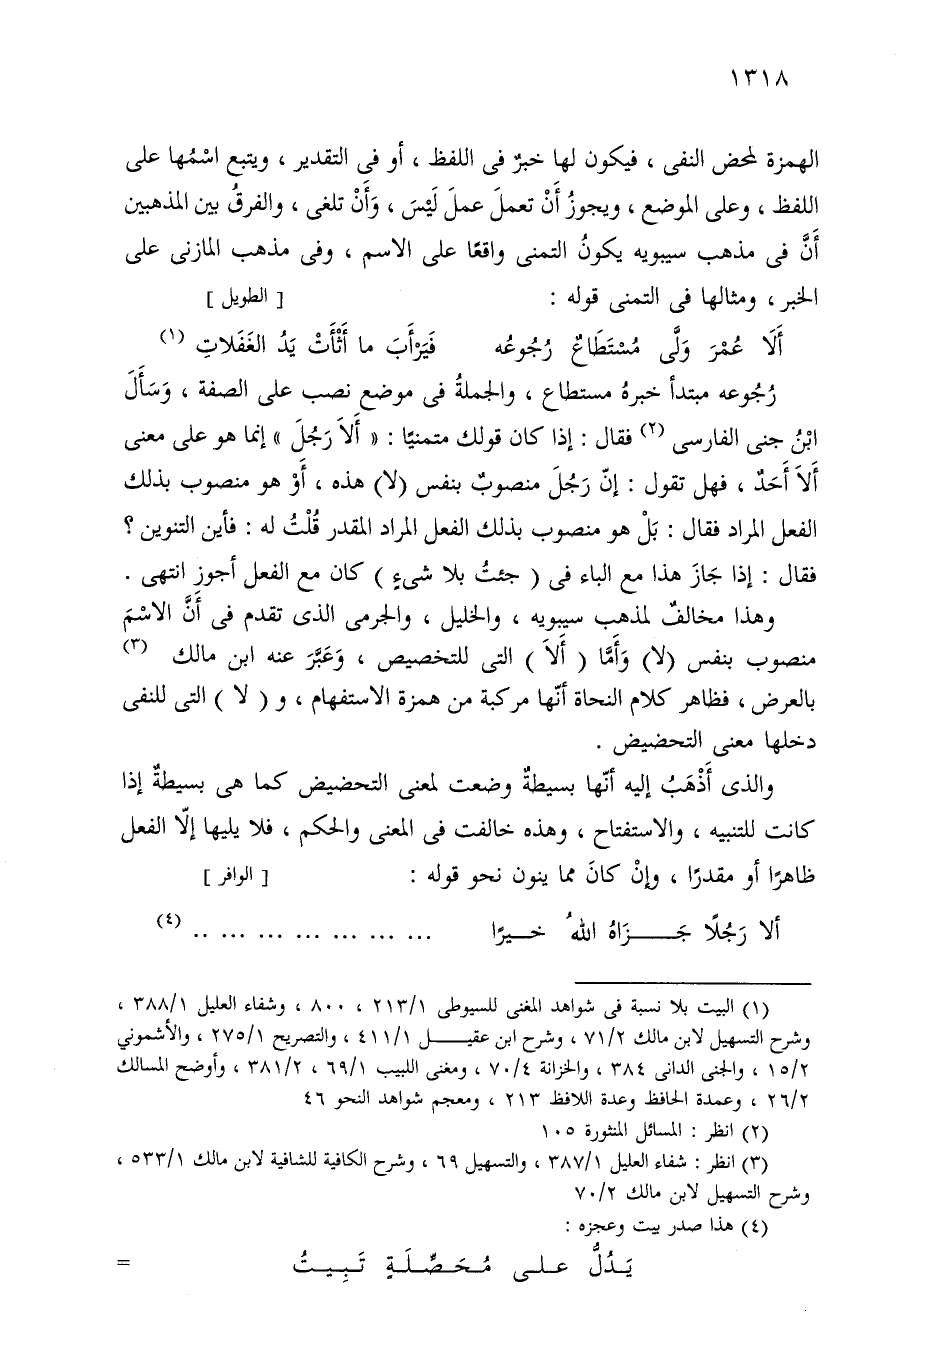 ١٣١٨
الهمزة لمحض النفى ، فيكون لها خبرٌ فى اللفظ ، أو فى التقدير ، ويتبع اسْمُها على
اللفظ ، وعلى الموضع ، ويجوزُ أَنْ تعملَ عملَ لَيْسَ ، وَأَنْ تلغى ، والفرقُ بين المذهبين
أَنَّ فى مذهب سيبويه يكونُ التمنى واقعًا على الاسم ، وفى مذهب المازنى على
الخبر ، ومثالها فى التمنى قوله : [ الطويل ]
أَلَا عُمْرَ وَلَّى مُسْتَطَاعٌ رُجُوعُه فَيَرْأَبَ ما أَثْأَتْ يَدُ الغَفَلاتِ (١)
رُجُوعه مبتدأ خبرهُ مستطاع ، والجملةُ فى موضع نصب على الصفة ، وَسَأَلَ
ابْنُ جنى الفارسى (٢) فقال : إذا كان قولك متمنيًا : « أَلاَ رَجُلَ » إنما هو على معنى
أَلاَ أَحَدٌ ، فهل تقول : إنّ رَجُلَ منصوبٌ بنفس (لا) هذه ، أَوْ هو منصوب بذلك
الفعل المراد فقال : بَلْ هو منصوب بذلك الفعل المراد المقدر قُلْتُ له : فأين التنوين ؟
فقال : إذا جَازَ هذا مع الباء فى ( جئتُ بلا شىءٍ ) كان مع الفعل أجوز انتهى .
وهذا مخالفٌ لمذهب سيبويه ، والخليل ، والجرمى الذى تقدم فى أَنَّ الاسْمَ
منصوب بنفس (لا) وَأَمَّا ( أَلاَ ) التى للتخصيص ، وَعَبَّرَ عنه ابن مالك (٣)
بالعرض ، فظاهر كلام النحاة أنّها مركبة من همزة الاستفهام ، و ( لا ) التى للنفى
دخلها معنى التحضيض .
والذى أَذْهَبُ إليه أنّها بسيطةٌ وضعت لمعنى التحضيض كما هى بسيطةٌ إذا
كانت للتنبيه ، والاستفتاح ، وهذه خالفت فى المعنى والحكم ، فلا يليها إلّا الفعل
ظاهرًا أو مقدرًا ، وإنْ كانَ مما ينون نحو قوله : [ الوافر ]
ألا رَجُلًا جَـــــزَاهُ اللهُ خـــيرًا ... ... ... ... ... ... .. (٤)
(١) البيت بلا نسبة فى شواهد المغنى للسيوطى ٢١٣/١ ، ٨٠٠ ، وشفاء العليل ٣٨٨/١ ،
وشرح التسهيل لابن مالك ٧١/٢ ، وشرح ابن عقيـــــل ٤١١/١ ، والتصريح ٢٧٥/١ ، والأشموني
١٥/٢ ، والجنى الدانى ٣٨٤ ، والخزانة ٧٠/٤ ، ومغنى اللبيب ٦٩/١ ، ٣٨١/٢ ، وأوضح المسالك
٢٦/٢ ، وعمدة الحافظ وعدة اللافظ ٢١٣ ، ومعجم شواهد النحو ٤٦
(٢) انظر : المسائل المنثورة ١٠٥
(٣) انظر : شفاء العليل ٣٨٧/١ ، والتسهيل ٦٩ ، وشرح الكافية للشافية لابن مالك ٥٣٣/١ ،
وشرح التسهيل لابن مالك ٧٠/٢
(٤) هذا صدر بيت وعجزه :
يَـدُلُّ عـلـى مُـحَـصِّـلَـةٍ تَـبِـيـتُ =